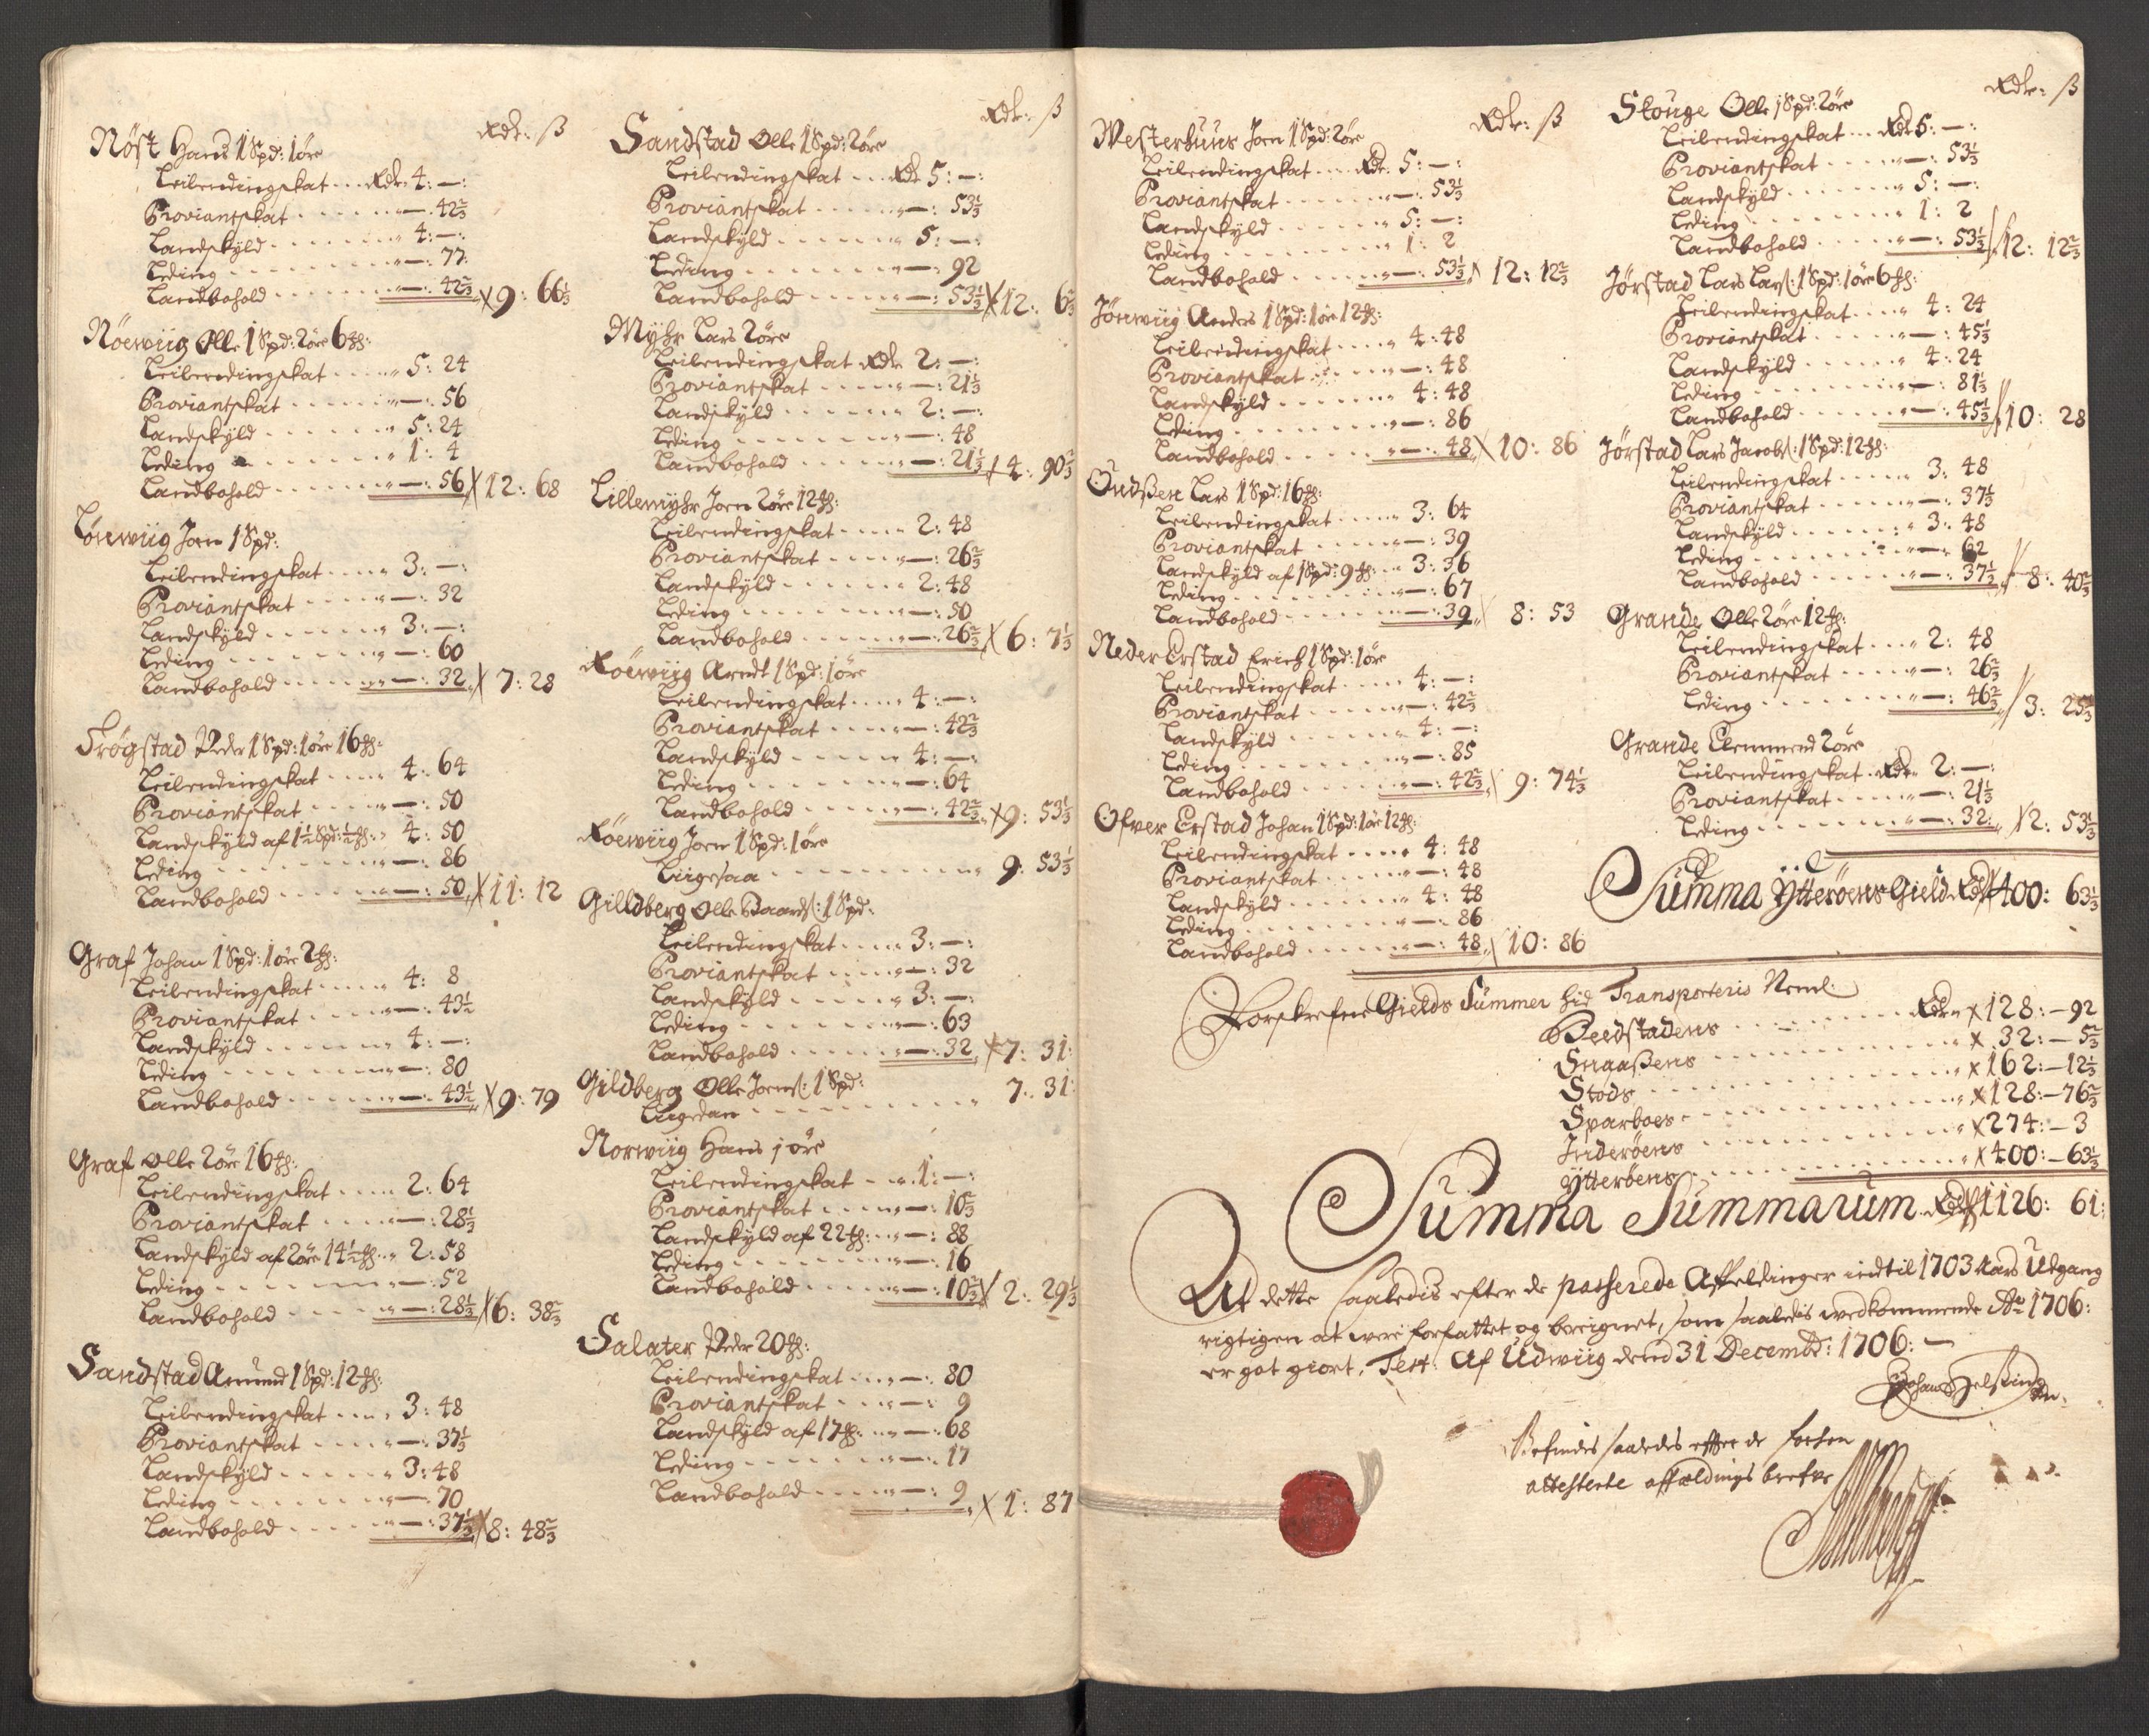 Rdr: ß
Nöst Hans 1 Spd: 1 öre
Leilendingskat ... Rdr. 4: —:
Proviantskat ... „ —: 42 2/3
Landskyld ... „ 4: —:
Leding ... „ —: 77:
Landbohold ... „ —: 42 2/3 X 9: 66 1/3
Nöewiig Olle 1 Spd: 2 öre 6 ℔:
Leilendingskat ... „ 5: 24
Proviantskat ... „ —: 56
Landskyld ... „ 5: 24
Leding ... „ 1: 4
Landbohold ... „ —: 56 X 12: 68
Lönwiig Jon 1 Spd:
Leilendingskat ... „ 3: —:
Proviantskat ... „ —: 32
Landskyld ... „ 3: —:
Leding ... „ —: 60
Landbohold ... „ —: 32 X 7: 28
Frögstad Peder 1 Spd: 1 öre 16 ℔:
Leilendingskat ... „ 4: 64
Proviantskat ... „ —: 50
Landskyld af 1 1/2 Spd: 1/2 ℔: „ 4: 50
Leding ... „ —: 86
Landbohold ... „ —: 50 X 11: 12
Graf Johan 1 Spd: 1 öre 2 ℔:
Leilendingskat ... „ 4: 8
Proviantskat ... „ —: 43 1/2
Landskyld ... „ 4: —:
Leding ... „ —: 80
Landbohold ... „ —: 43 1/2 X 9: 79
Graf Olle 2 öre 16 ℔:
Leilendingskat ... „ 2: 64
Proviantskat ... „ —: 28 1/3
Landskyld af 2 öre 14 1/2 ℔: „ 2: 58
Leding ... „ —: 52
Landbohold ... „ —: 28 1/3 X 6: 38 2/3
Sandstad Amund 1 Spd: 12 ℔:
Leilendingskat ... „ 3: 48
Proviantskat ... „ —: 37 1/3
Landskyld ... „ 3: 48
Leding ... „ —: 70
Landbohold ... „ —: 37 1/3 X 8: 48 2/3
Rdr: ß
Sandstad Olle 1 Spd: 2 öre
Leilendingskat ... Rdr 5: —:
Proviantskat ... „ —: 53 1/3
Landskyld ... „ 5: —:
Leding ... „ —: 92
Landbohold ... „ —: 53 1/3 X 12: 6 2/3
Myhr Lars 2 öre
Leilendingskat Rdr 2: —:
Proviantskat ... „ —: 21 1/3
Landskyld ... „ 2: —:
Leding ... „ —: 48
Landbohold ... „ —: 21 1/3 X 4: 90 2/3
Lillemyhr Joen 2 öre 12 ℔:
Leilendingskat ... „ 2: 48
Proviantskat ... „ —: 26 2/3
Landskyld ... „ 2: 48
Leding ... „ —: 50
Landbohold ... „ —: 26 2/3 X 6: 7 1/3
Röewiig Arndt 1 Spd: 1 öre
Leilendingskat ... „ 4: —:
Proviantskat ... „ —: 42 2/3
Landskyld ... „ 4: —:
Leding ... „ —: 64
Landbohold ... „ —: 42 2/3 X 9: 53 1/3
Röewiig Joen 1 Spd: 1 öre
Liigesaa ... „ 9: 53 1/3
Gilldberg Olle Baards: 1 Spd:
Leilendingskat ... „ 3: —:
Proviantskat ... „ —: 32
Landskyld ... „ 3: —:
Leding ... „ —: 63
Landbohold ... „ —: 32 X 7: 31:
Gildberg Olle Joens: 1 Spd:
Liigedan ... „ 7: 31:
Norwiig Hans 1 öre
Leilendingskat ... „ 1: —:
Proviantskat ... „ —: 10 2/3
Landskyld af 22 ℔: „ —: 88
Leding ... „ —: 16
Landbohold ... „ —: 10 2/3 X 2: 29 1/3
Salater Peder 20 ℔:
Leilendingskat ... „ —: 80
Proviantskat ... „ —: 9
Landskyld af 17 ℔: „ —: 68
Leding ... „ —: 17
Landbohold ... „ —: 9 X 1: 87
Rdr: ß
Westerhuus Joen 1 Spd: 2 öre
Leilendingskat ... Rdr. 5: —:
Proviantskat ... „ —: 53 1/3
Landskyld ... „ 5: —:
Leding ... „ 1: 2
Landbohold ... „ —: 53 1/3 X 12: 12 2/3
Jönwiig Anders 1 Spd: 1 öre 12 ℔:
Leilendingskat ... „ 4: 48
Proviantskat ... „ —: 48
Landskyld ... „ 4: 48
Leding ... „ —: 86
Landbohold ... „ —: 48 X 10: 86
Oudßen Lars 1 Spd: 16 ℔:
Leilendingskat ... „ 3: 64
Proviantskat ... „ —: 39
Landskyld af 1 Spd: 9 ℔: „ 3: 36
Leding ... „ —: 67
Landbohold ... „ —: 39 X 8: 53
Neder Erstad Erich 1 Spd: 1 öre
Leilendingskat ... „ 4: —:
Proviantskat ... „ —: 42 2/3
Landskyld ... „ 4: —:
Leding ... „ —: 85
Landbohold ... „ —: 42 2/3 X 9: 74 1/3
Ofver Erstad Johan 1 Spd: 1 öre 12 ℔:
Leilendingskat ... „ 4: 48
Proviantskat ... „ —: 48
Landskyld ... „ 4: 48
Leding ... „ —: 86
Landbohold ... „ —: 48 X 10: 86
Rdr: ß
Skouge Olle 1 Spd: 2 öre
Leilendingskat ... Rdr 5: —:
Proviantskat ... „ —: 53 1/3
Landskyld ... „ 5: —:
Leding ... „ 1: 2
Landbohold ... „ —: 53 1/3 X 12: 12 2/3
Jörstad Lars Lars: 1 Spd: 1 öre 6 ℔:
Leilendingskat ... „ 4: 24
Proviantskat ... „ —: 45 1/3
Landskyld ... „ 4: 24
Leding ... „ —: 81 1/3
Landbohold ... „ —: 45 1/3 X 10: 28
Jörstad Lars Jacobs: 1 Spd: 12 ℔:
Leilendingskat ... „ 3: 48
Proviantskat ... „ —: 37 1/3
Landskyld ... „ 3: 48
Leding ... „ —: 62
Landbohold ... „ —: 37 1/3 X 8: 40 2/3
Grande Olle 2 öre 12 ℔:
Leilendingskat ... „ 2: 48
Proviantskat ... „ —: 26 2/3
Leding ... „ —: 46 2/3 X 3: 25 1/3
Grande Clemmend 2 öre
Leilendingskat Rdr 2: —:
Proviantskat ... „ —: 21 1/3
Leding ... „ —: 32: X 2: 53 1/3
Summa Ytteröens Gield Rdr 400: 63 1/3
Forskrefne Gields Summer hid Transporteris Neml:
Beedstadens ... Rdr X 128: — 92
Snaaßens ... „ X 32: — 5 2/3
Stods ... „ X 162: — 12 1/3
Sparboes ... „ X 128: — 76 2/3
Inderöens ... „ X 274: — 3
Ytteröens ... „ X 400: — 63 1/3
Summa Summarum Rdr 1126: 61:
At dette saaledis efter de passerede Affeldinger indtil 1703 Aars Udgang
rigtigen at were forfattet og bereignet, som saaledis wedkommende Ao 1706:
er got giort, Test: Af Udwiig dend 31 Decembr: 1706: —
Johan Helßing
Befindes saaledes effter de
attesterte affældings brefve